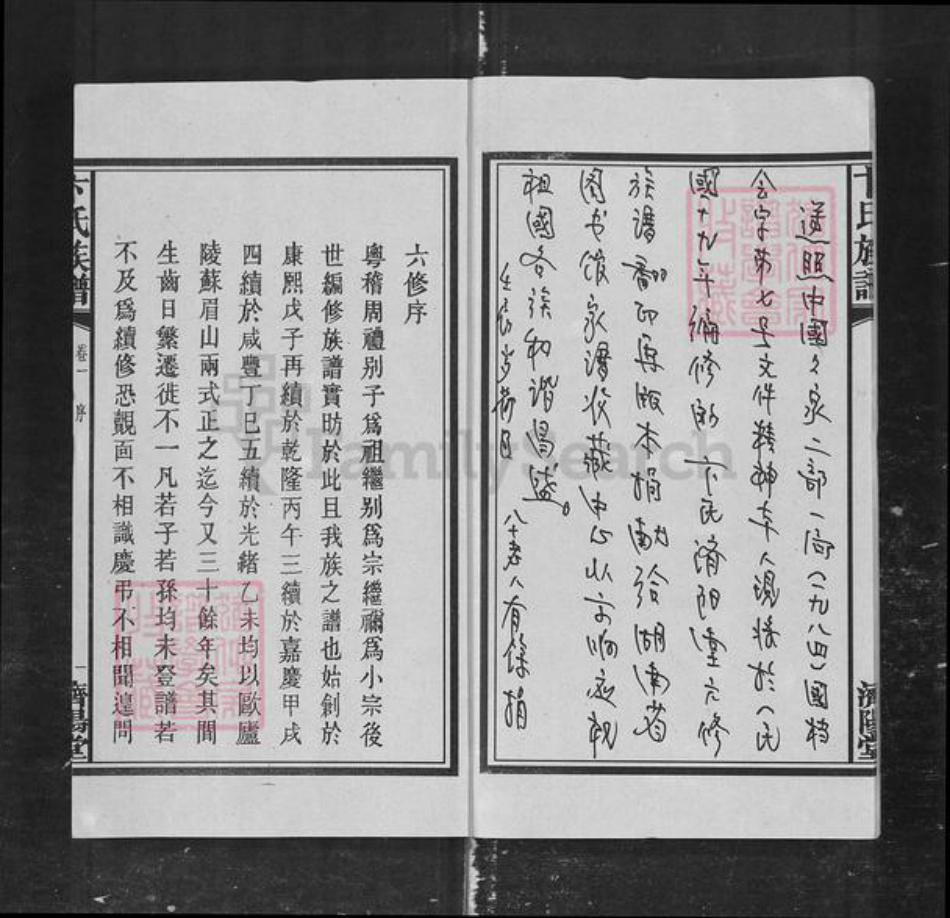 遵照中國公安二部一局(一九八四)國档
会字第七号文件精神本人現将於(民
國十九年編修的卞氏濟阳堂六修
族谱翻印再版本捐献给湖南省
图书馆家谱收藏中心以示响应祝
祖國各族和谐昌盛。
八十老人有餘捐
六修序
粵稽周禮別子爲祖繼別爲宗繼禰爲小宗後
世編修族譜實昉於此且我族之譜也始創於
康熙戊子再續於乾隆丙午三續於嘉慶甲戌
四續於咸豐丁巳五續於光緒乙未均以歐廬
陵蘇眉山兩式正之迄今又三十餘年矣其間
生齒日繁遷徙不一凡若子若孫均未登譜若
不及爲續修恐覿面不相識慶弔不相聞遑問
卞氏族譜
卷一
序
一
濟陽堂
FamilySearch